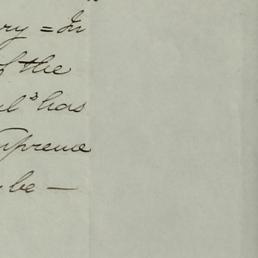 ry = In
of the
has
upreme
be —